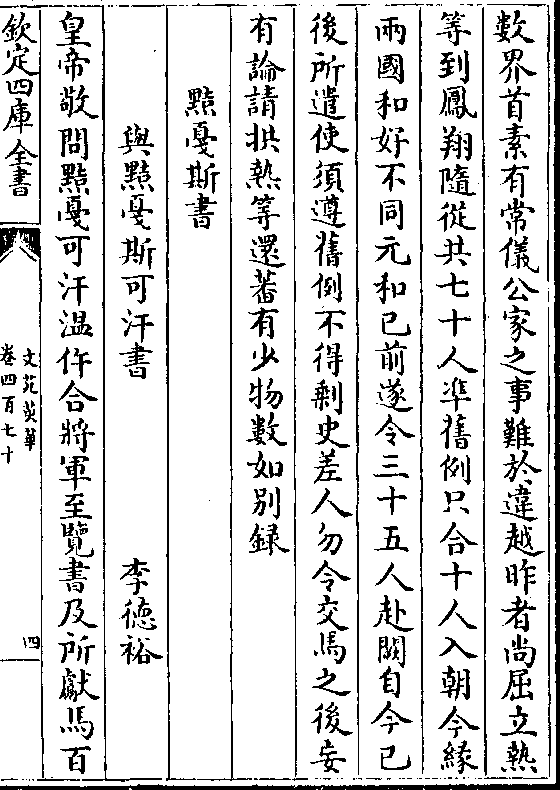 數界首素有常儀公家之事難於違越昨者尚屈立熱
等到鳳翔隨從共七十人準舊例只合十人入朝今緣
兩國和好不同元和已前遂令三十五人赴闕自今已
後所遣使須遵舊例不得剩史差人勿令交馬之後妄
有論請拱熱等還蕃有少物數如别録
黠戛斯書
與黠戛斯可汗書 李德裕
皇帝敬問黠戛可汗温仵合將軍至覽書及所獻馬百
欽定四庫全書
文苑英華
卷四百七十
四